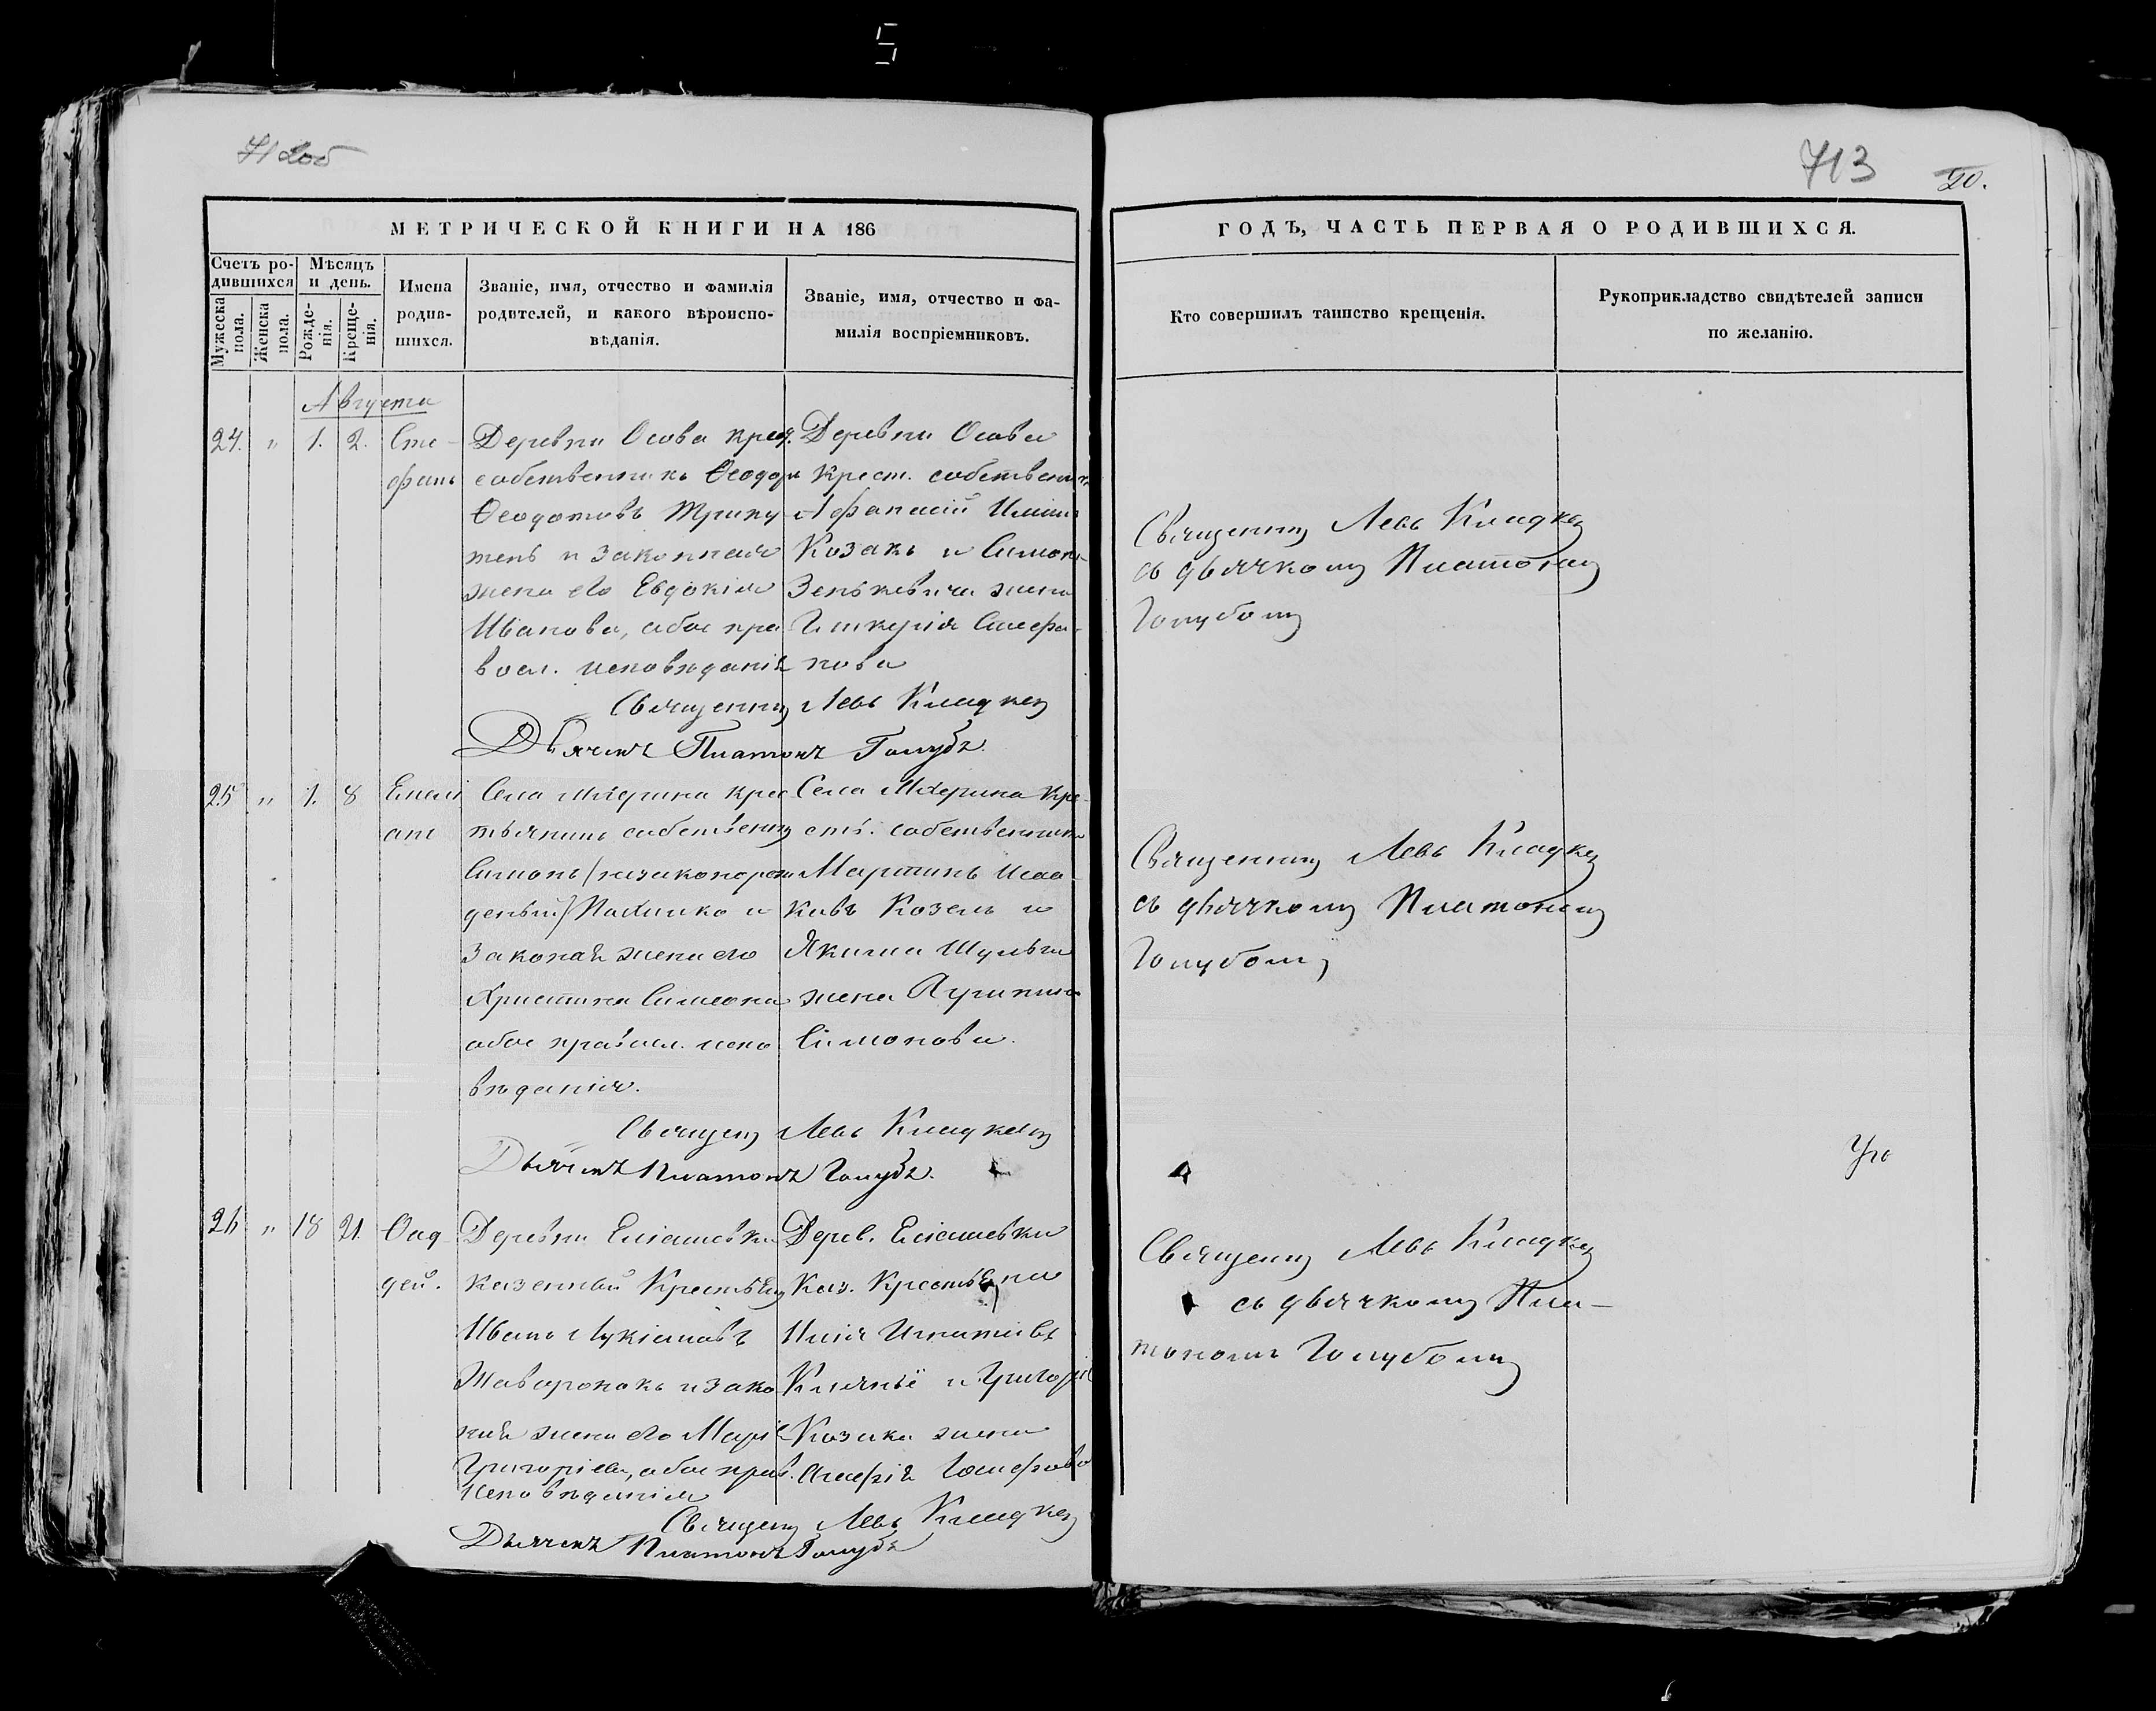 713
20.
МЕТРИЧЕСКОЙ КНИГИ НА 186
ГОДЪ, ЧАСТЬ ПЕРВАЯ О РОДИВШИХСЯ.
Счетъ ро-
дившихся
Мужеска пола.
Женска пола.
Мѣсяцъ
и день.
Рожде-
нія.
Креще-
нія.
Имена
родив-
шихся.
Званіе, имя, отчество и фамилія
родителей, и какого вѣроиспо-
вѣданія.
Званіе, имя, отчество и фа-
милія воспріемниковъ.
Кто совершилъ таинство крещенія.
Рукоприкладство свидѣтелей записи
по желанію.
Августа
24. " 1. 2.
Сте-
фанъ
Деревни Осова крест.
собственникъ Ѳеодоръ
Ѳеодотовъ
и законная
жена его Евдокія
Иванова, обое пра
восл. исповѣданія
Деревни Осова
Крест. собственникъ
Афанасій
Козакъ и Симона
Зенькевича жена
Гликерія Стефа-
нова
Священникъ Левъ
Дьячекъ Платонъ Голубъ.
Священникъ Левъ
съ дьячкомъ Платономъ
Голубомъ
25 " 1. 8
Емелі
анъ
Села Михерина крес
тьянинъ собственникъ
Симонъ /незаконорож
деный/ и
Законая жена его
Христина Симеона
обое правосл. испо
вѣданія.
Села Михерина Кре-
стьянинъ собственникъ
Мартинъ Исаа-
ковъ Козелъ и
Якима Шульги
жена
Симонова.
Священникъ Левъ
Дьячекъ Платонъ Голубъ.
Священникъ Левъ
съ дьячкомъ Платономъ
Голубомъ
26 " 18 21.
Ѳад
дей.
Деревни Еліашевки
казенный Крестьянинъ
Иванъ Лукіановъ
Жаворонокъ и зако
ная жена его Марія
Григоріева, обое прав.
исповѣданія
Дерев. Еліашевки
Каз. Крестьянинъ
Илія Игнатіевъ
и Григорія
Козака жена
Іосифова
Священникъ Левъ
Дьячекъ Платонъ Голубъ
Священникъ Левъ
съ дьячкомъ Пла-
тономъ Голубомъ